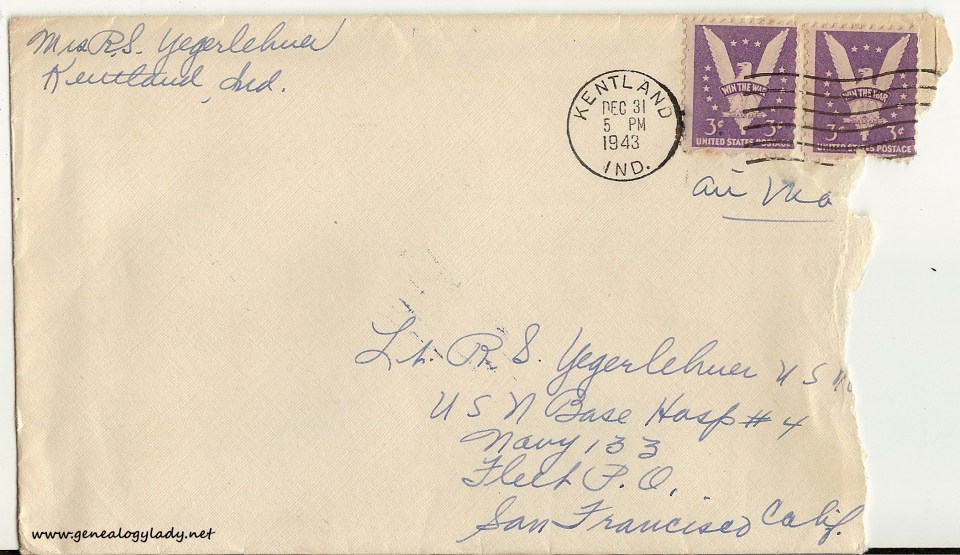 Mrs R. S. Yegerlehner
Kentland, Ind.
KENTLAND
DEC 31
5 PM
1943
IND.
WIN THE WAR
3¢ 3¢
UNITED STATES POSTAGE
WIN THE WAR
3¢ 3¢
UNITED STATES POSTAGE
Air Ma
Lt. R. S. Yegerlehner U S N
U S N Base Hosp # 4
Navy 133
Fleet P.O.
San Francisco Calif.
www.genealogylady.net